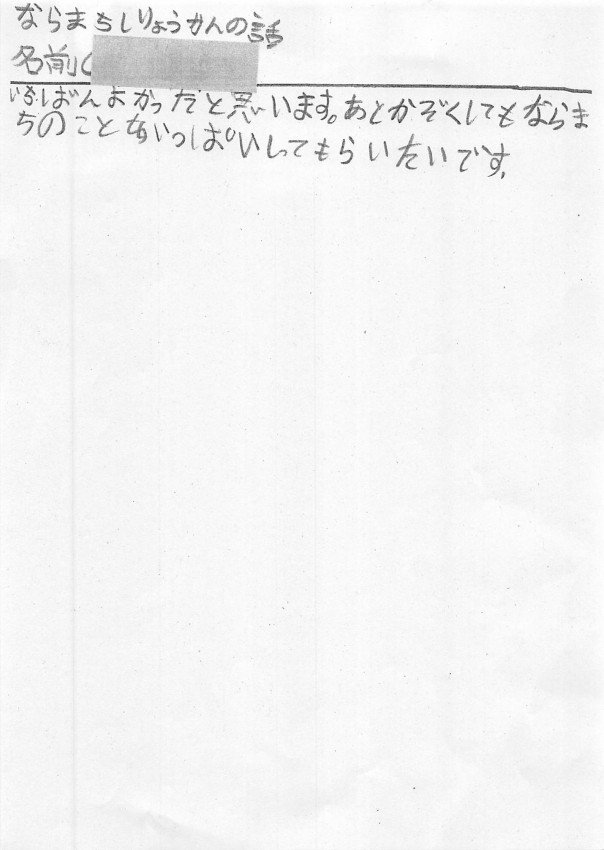 ならまちしりょうかんの話
名前(
いちばんよかっだと思います。あとかぞくしてもならま
ちのことをいっぱいしってもらいたいです。